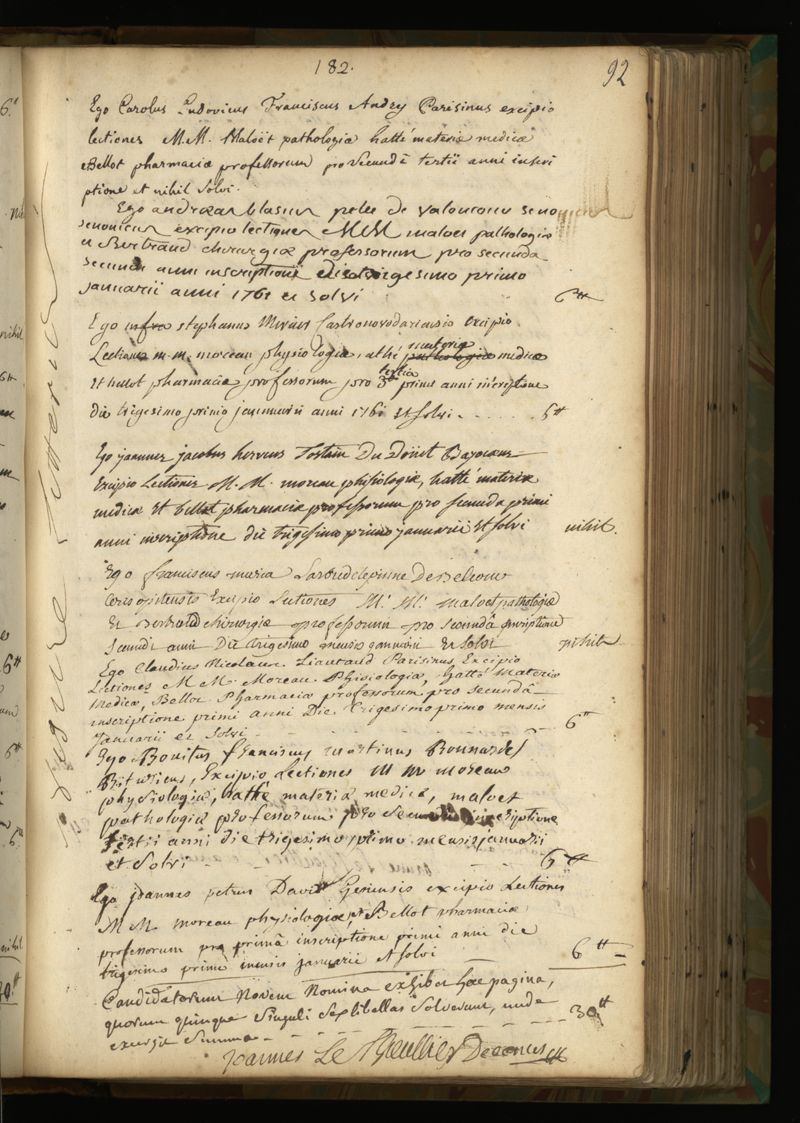 182.
92
Ego Carolus Ludovicus Franciscus Andry Parisinus excipio
lectiones M.M. Maloët pathologiæ hatté materiæ medicæ
Bellot pharmaciæ professorum pro secundâ tertii anni inscri
ptione et nihil solvi.
Ego andræas blasius de valoucour
senonicus excipio lectiones MM maloet pathologiæ
et Bertrand chirurgiæ professorum pro secunda
secundi anni inscriptione die trigesimo primo
januarii anni 1761 et solvi 6tt
Ego stephanus Castronovodariensis Excipio
Lectiones m.m. moreau physiologiæ, athé materiæ pathologiæ medicæ
et bellot pharmaciæ professorum pro tertia 3a primi anni inscriptione
die trigesimo primo januarii anni 1761 et solvi 6tt
Ego joannes jacobus herveus Tostain Du Doüet Bajocens
Excipio Lectiones M. M. moreau phisiologiæ, hatté materiæ
medicæ Et bellot pharmaciæ professorum pro secunda primi
anni inscriptione die trigesimo primo januarii Et solvi nihil.
Ego franciscus maria
Excipio Lectiones M. M. maloet pathologiæ
Et Bertrand chirurgiæ professorum pro secundâ inscriptione
secundi anni Die trigesimo mensis januarii Et solvi nihil
Ego Claudius Nicolaus Liautaud Parisinus Excipio
Lectiones M M. Moreau Phisiologiæ, hatté Materiæ
Medicæ, Bellot Pharmaciæ professorum pro secundâ
inscriptione primi anni Die Trigesimo primo mensis
Januarii et solvi 6tt
Ego Bonitus franciscus martinus Bonnardel
Bituricus, Excipio Lectiones M M moreau
physiologiæ, hathé materiæ medicæ, maloet
pathologiæ professorum pro secunda inscriptione
tertii anni die trigesimo primo mensis januarii
et solvi 6tt
Ego joannes petrus David Gesiensis excipio Lectiones
M M moreau physiologiæ, et Bellot pharmaciæ
professorum pro primâ inscriptione primi anni die
trigesimo primo mensis januarii et solvi 6tt
Candidatorum Novem Nomina exhibet hæc pagina,
quorum quinque singuli sex libellas solverunt, unde
exurgit summa 30tt
Joannes Le Thieullier Decanus